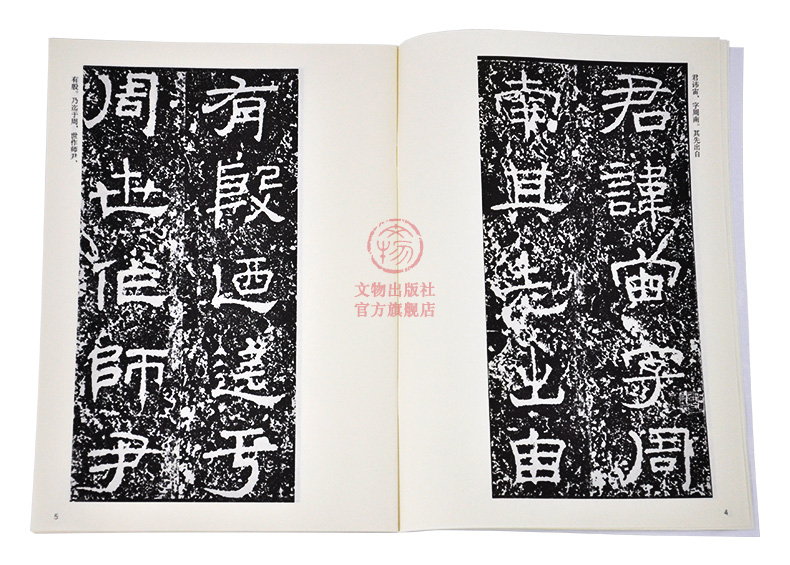 君讳宙，字周南。其先出自
君諱宙字周
南其先出自
有殷迺迄于
周世作師尹
有殷。乃迄于周，世作师尹，
文物
文物出版社
官方旗舰店
4
5